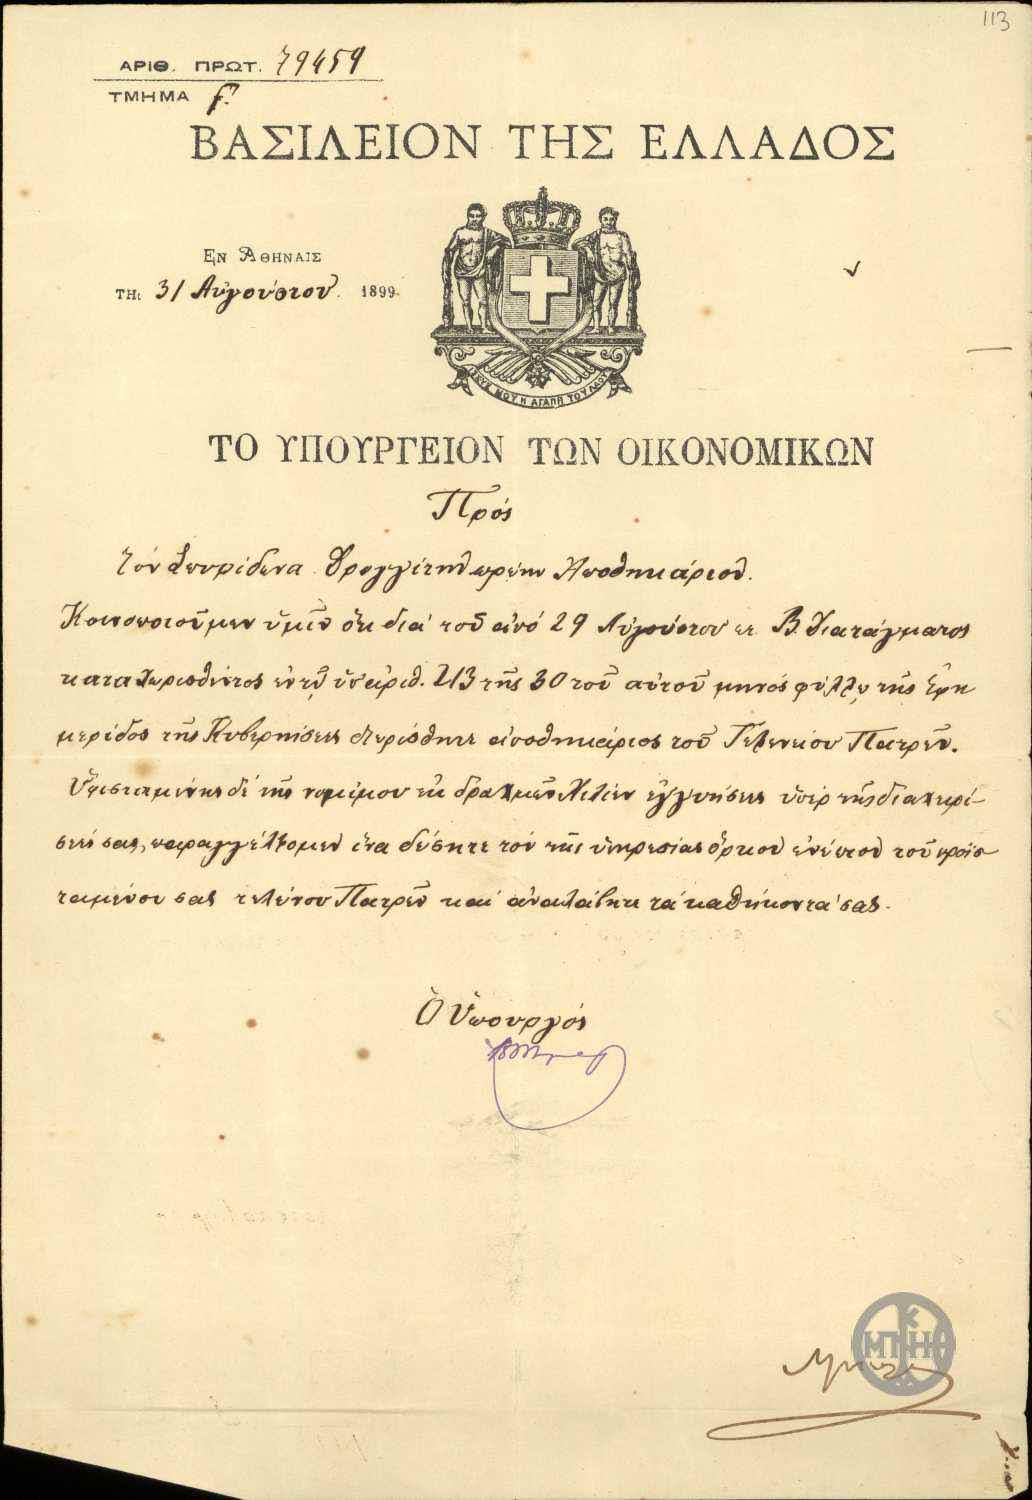 113
ΑΡΙΘ. ΠΡΩΤ. 79459
ΤΜΗΜΑ
ΒΑΣΙΛΕΙΟΝ ΤΗΣ ΕΛΛΑΔΟΣ
ΕΝ ΑΘΗΝΑΙΣ
ΤΗι 31 Αὐγούστου 1899
ΙΣΧΥΣ ΜΟΥ Η ΑΓΑΠΗ ΤΟΥ ΛΑΟΥ
ΤΟ ΥΠΟΥΡΓΕΙΟΝ ΤΩΝ ΟΙΚΟΝΟΜΙΚΩΝ
Πρός
τόν Σπυρίδωνα πρώην Ἀποθηκάριον.
Κοινοποιοῦμεν ὑμῖν ὅτι διά τοῦ ἀπό 29 Αὐγούστου Β. Διατάγματος
καταχωρισθέντος ἐν τῷ ὑπ' ἀριθ. 213 τῆς 30 τοῦ αὐτοῦ μηνός φύλλῳ τῆς Ἐφη
μερίδος τῆς Κυβερνήσεως διωρίσθητε ἀποθηκάριος τοῦ Τελωνείου Πατρῶν.
Ὑφισταμένης δέ τῆς νομίμου ἐκ δραχμῶν χιλίων ἐγγυήσεως ὑπέρ τῆς διαχειρί-
σεώς σας, παραγγέλλομεν ἵνα δώσητε τόν τῆς ὑπηρεσίας ὅρκον ἐνώπιον τοῦ προϊσ
ταμένου σας τελώνου Πατρῶν καί ἀναλάβητε τά καθήκοντά σας.
Ὁ Ὑπουργός
ΜΠΚΗΘ